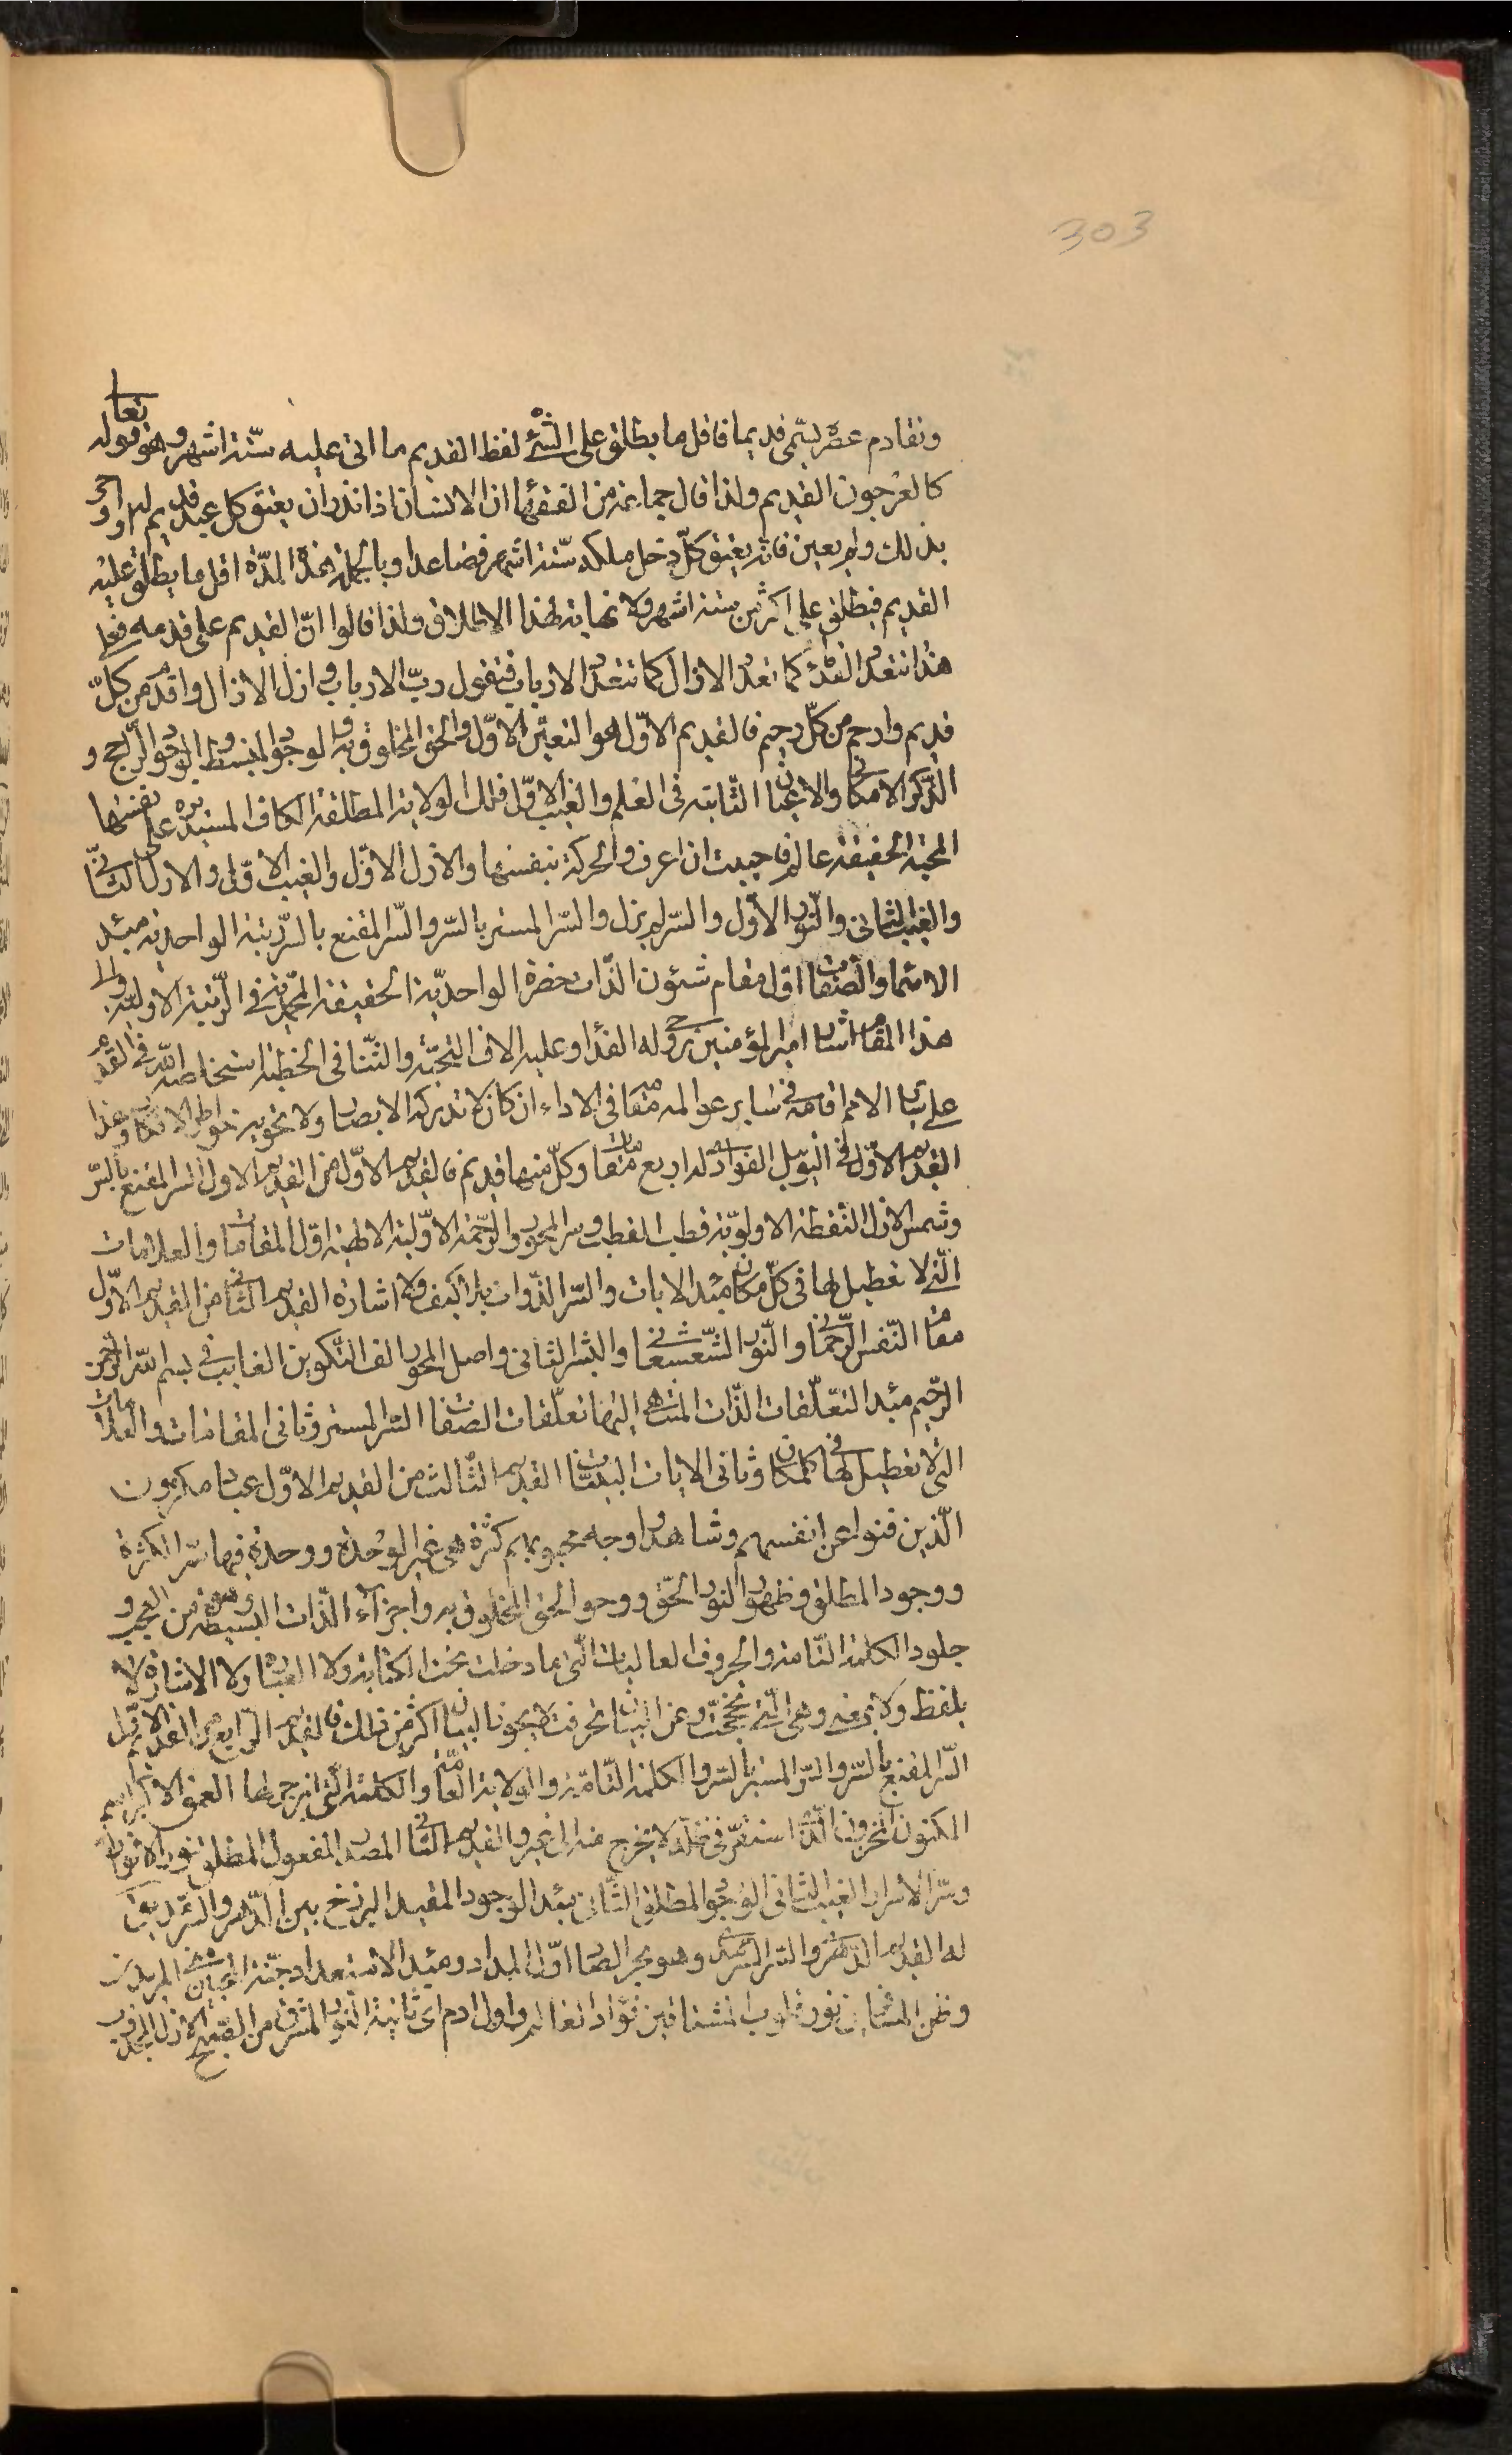 303
وتقادم عصره يسمّى قديما فاقل ما يطلق على الشئ لفظ القديم ما اتى عليه ستّة اشهر وهو قوله تعا
كالعرجون القديم ولذا قال جماعة من الفقهٓا ان الانسان اذا نذر ان يعتق كل عبد قديم له او
بذلك ولم يعين فانه يعتق كلّ دخل ملكه ستّة اشهر فصاعدا وبالجملة هذه المدّة اقل ما يطلق عليه
القديم فيطلق على اكثر من ستة اشهر ولا نهاية لهذا الاطلاق ولذا قالوا انّ القديم على قدمه فعلى
هذا تتعدد القدمٓ كما تعدد الازال كما تتعدد الارباب فتقول ربّ الارباب وازل الازال واقدم من كلّ
قديم وارحم من كلّ رحيم فالقديم الاوّل هو التعيّن الاوّل والحق المخلوق به والوجود المنبسط والوجود الراجح و
الذّكر الامكانى والاعيان الثّابتة فى العلم والغيب الاوّل فلك الولاية المطلقة الكاف المستديرة على نفسها
المحبّة الحقيقة عالم فاحببت ان اعرف والحركة بنفسها والازل الاوّل والغيب الاوّل والازل الثّانى
والغيب الثانى والنّور الاوّل والسّر لم يزل والسّر المستسر بالسّر والسّر المقنع بالسّر رتبة الواحدية مبدء
الاسمٓا والصّفات اوّل مقام شئون الذّات حضرة الواحديّة الحقيقة المحمّدية فى الرّتبة الاوليّة والى
هذا المقام اشار امير المؤمنين روحى له الفدٓا وعليه الاف التحيّة والثّنا فى الخطبة استخلصه اللّه فى القدم
على سائر الامم اقامه فى سٓاير عوالمه مقامه فى الاداء ان كان لا تدركه الابصار ولا تحويه خواطر الافكار وهذا
القديم الاوّل فى التويل الفؤاد له اربع مقامات وكلّ منها قديم فالقديم الاوّل من القديم الاول السّر المقنع بالسّر
وشمس الازل النّقطة الاولويّة قطب القطب وسر المحور والرّحمة الاوّليّة الالهيّة اوّل المقامات والعلامات
الّتى لا تعطيل لها فى كلّ مكان مبدء الايات والسّر الذّوات بلا كيف ولا اشارة القديم الثّانى من القديم الاوّل
مقام النّفس الرّحمانى والنّور الشّعشعانى والسّر الثانى واصل المحور الف التّكوين الغايب فى بسم اللّه الرّحمن
الرّحيم مبدء التعلّقات الذّات المنتهى اليها تعلّقات الصّفات السّر المستسر وثانى المقامات والعلامات
التى لا تعطيل لها فى كلمكان وثانى الايات البيّنات القديم الثّالث من القديم الاوّل عباد مكرمون
الّذين فنوا عن انفسهم وشاهدوا وجه محبوبهم كثرة هى غير الوحدة ووحدة فيها سّر الكثرة
ووجود المطلق وظهور النور الحقّ ووجود الحق المخلوق به واجزاء الذّات البسيطة من
الكلمة التّامة والحروف العاليات الّتى ما دخلت تحت الكتابة ولا العبارة ولا الاشارة لا
بلفظ ولا بمعنى وهى الّتى عن البيان اكثر من ذلك فالقديم الرّابع من القديم الاوّل
السّر المقنع بالسّر والسّر المستسر بالسّر والكلمة التّامّة والولاية العامّة والكلمة الّتى انزجر لها العمق الاكبر اسم
المكنون المخزون الّذى استقرّ فى ظلّه لا يخرج منه الى غيره القديم الثّانى المصدر المفعول المطلق نور الانوار
وسّر الاسرار الغيب الثانى الوجود المطلق الثّانى مبدء الوجود المقيد البرزخ بين الدّهر والسّرمد
له القديم الدّهرى والسّر السّرمدى وهو بحر الصّاد اوّل المداد ومبدء الاستعداد جنّة
نور قلوب المشتاقين فؤاد العالم واول ادم اى ثانية النّور المشرق من الصّبح الازل